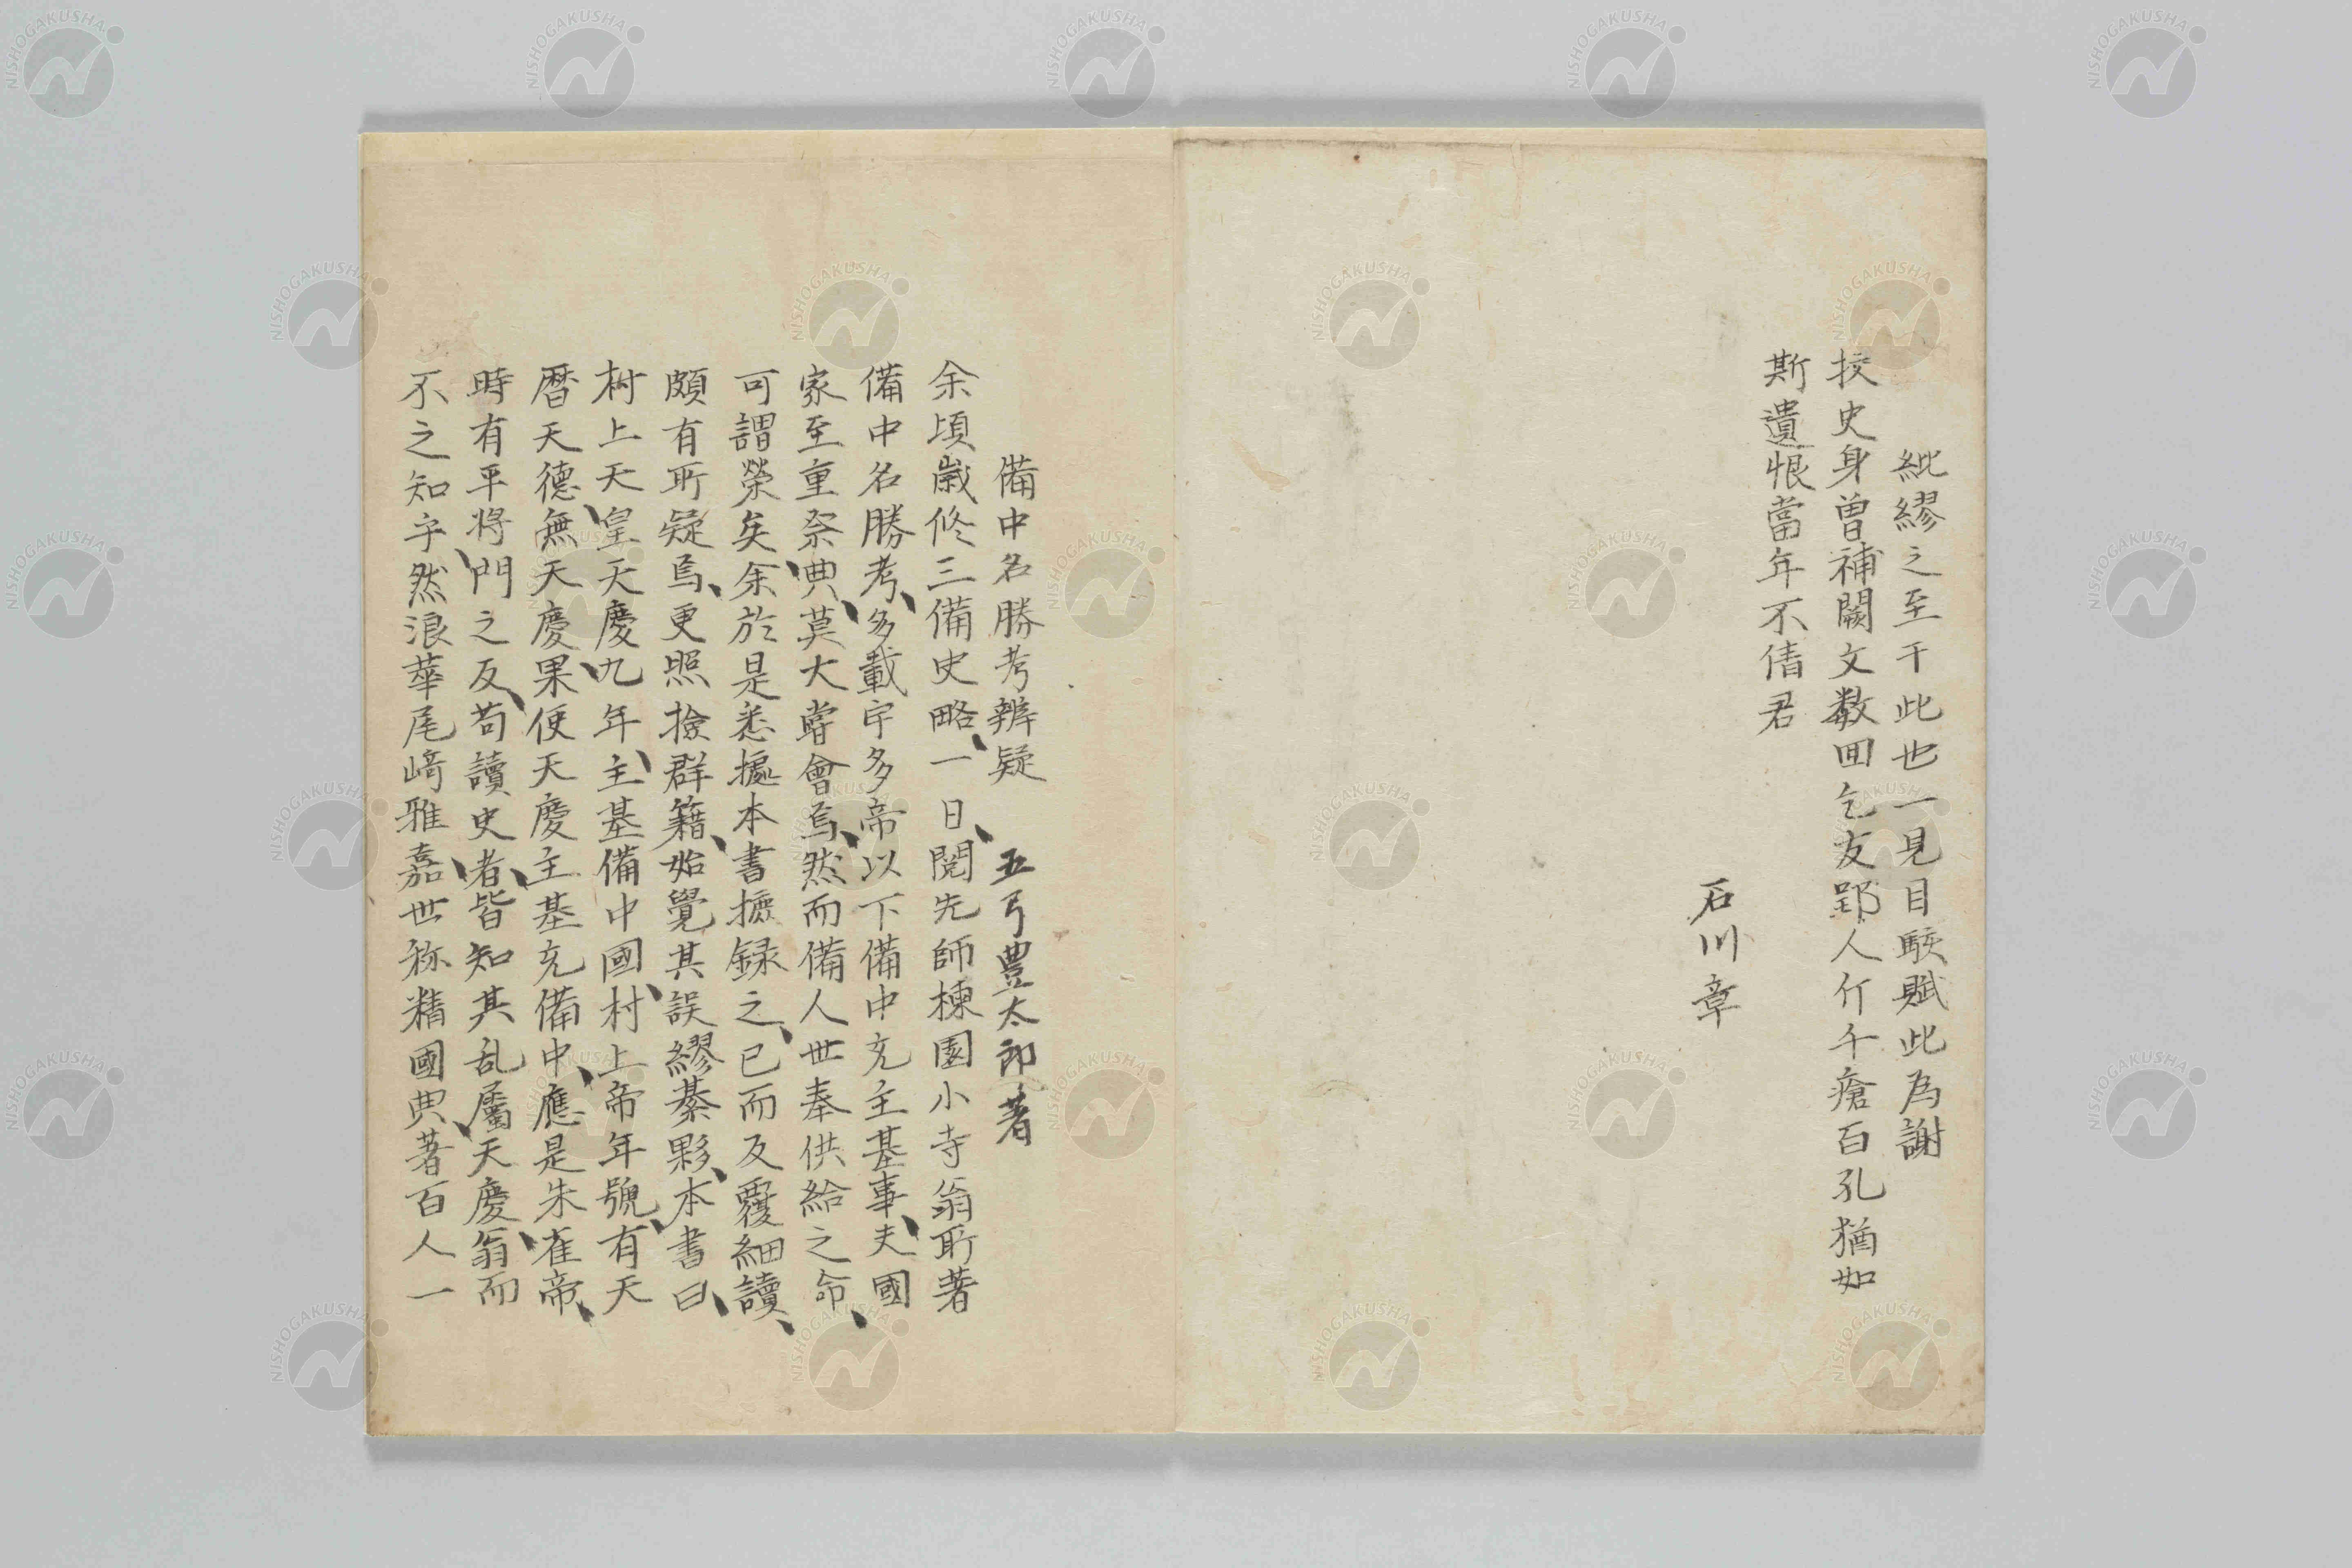 紕繆之至于此也一見目駭賦此為謝
挍史身曽補闕文数回乞友郢人斤千瘡百孔猶如
斯遺恨當年不倩君
石川章
備中名勝考辨疑　五弓豊太郎著
余頃歳修三備史略、一日、閲先師楝園小寺翁所著
備中名勝考、多載宇多帝以下備中充主基事、夫國
家至重祭典、莫大甞會焉、然而備人世奉供給之命、
可謂榮矣、余於是悉據本書摭録之、已而反覆細讀、
頗有所疑焉、更照撿群籍、始覺其誤繆綦夥、本書曰、
村上天皇天慶九年、主基備中國、村上帝年號、有天
暦天德、無天慶、果便天慶主基充備中、應是朱雀帝、
時有平將門之反、苟讀史者、皆知其乱屬天慶、翁而
不之知乎、然浪華尾﨑雅嘉、世称精國典、著百人一
NISHOGAKUSHA